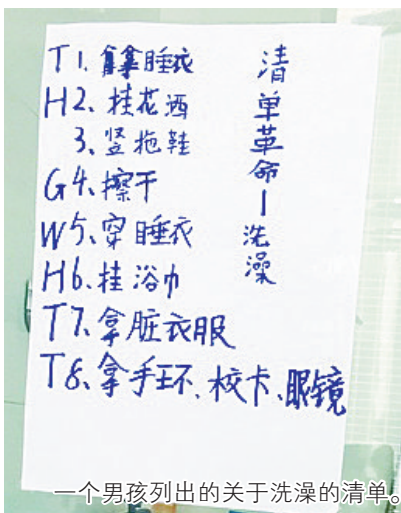 T1、拿睡衣
H2、桂花洒
3、竖拖鞋
G4、擦干
W5、穿睡衣
H6、桂浴巾
T7、拿脏衣服
T8、拿手环、校卡、眼镜
清单革命—洗澡
一个男孩列出的关于洗澡的清单。